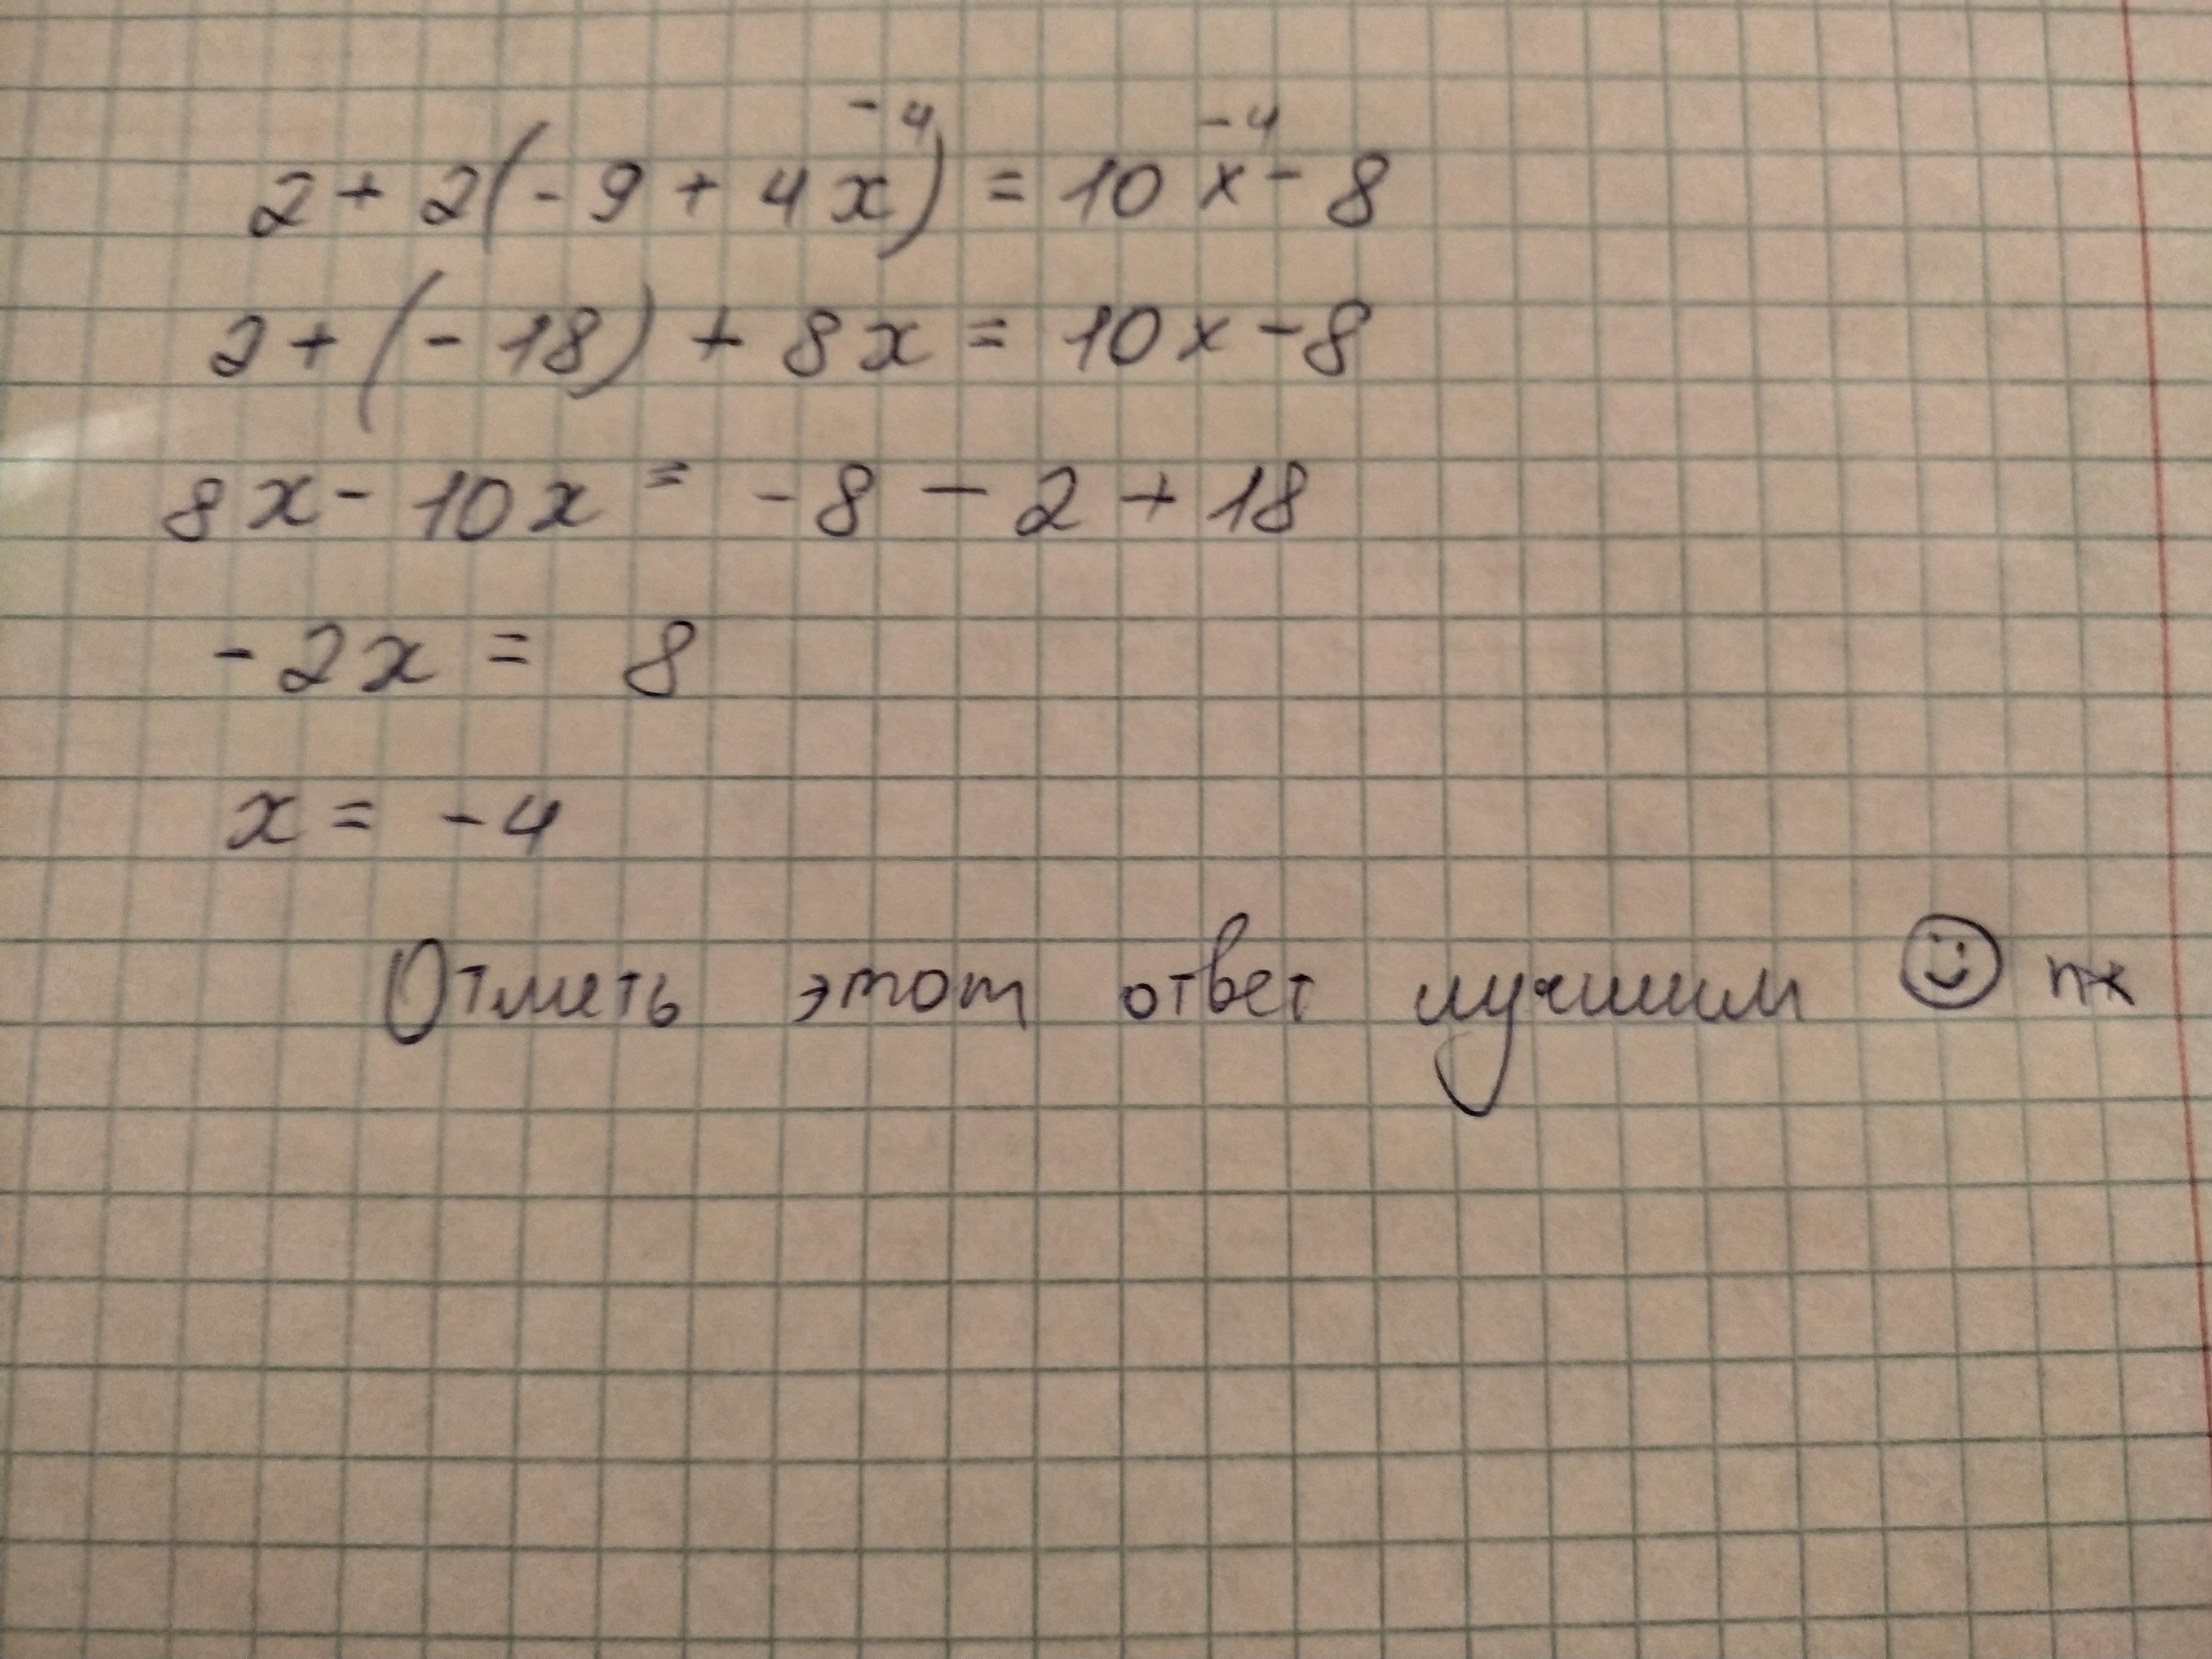 -4 -4
2 + 2(-9 + 4x) = 10x - 8
2 + (-18) + 8x = 10x - 8
8x - 10x = -8 - 2 + 18
-2x = 8
x = -4
Отметь этот ответ лучшим